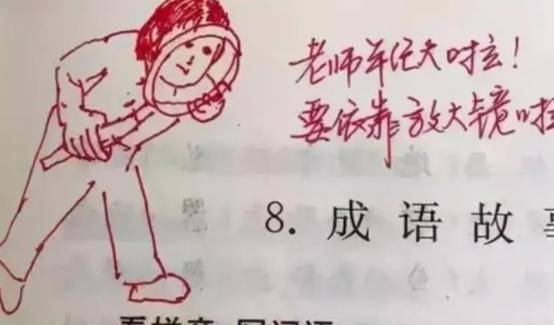 老师年纪大啦！
要依靠放大镜啦
8. 成语故事